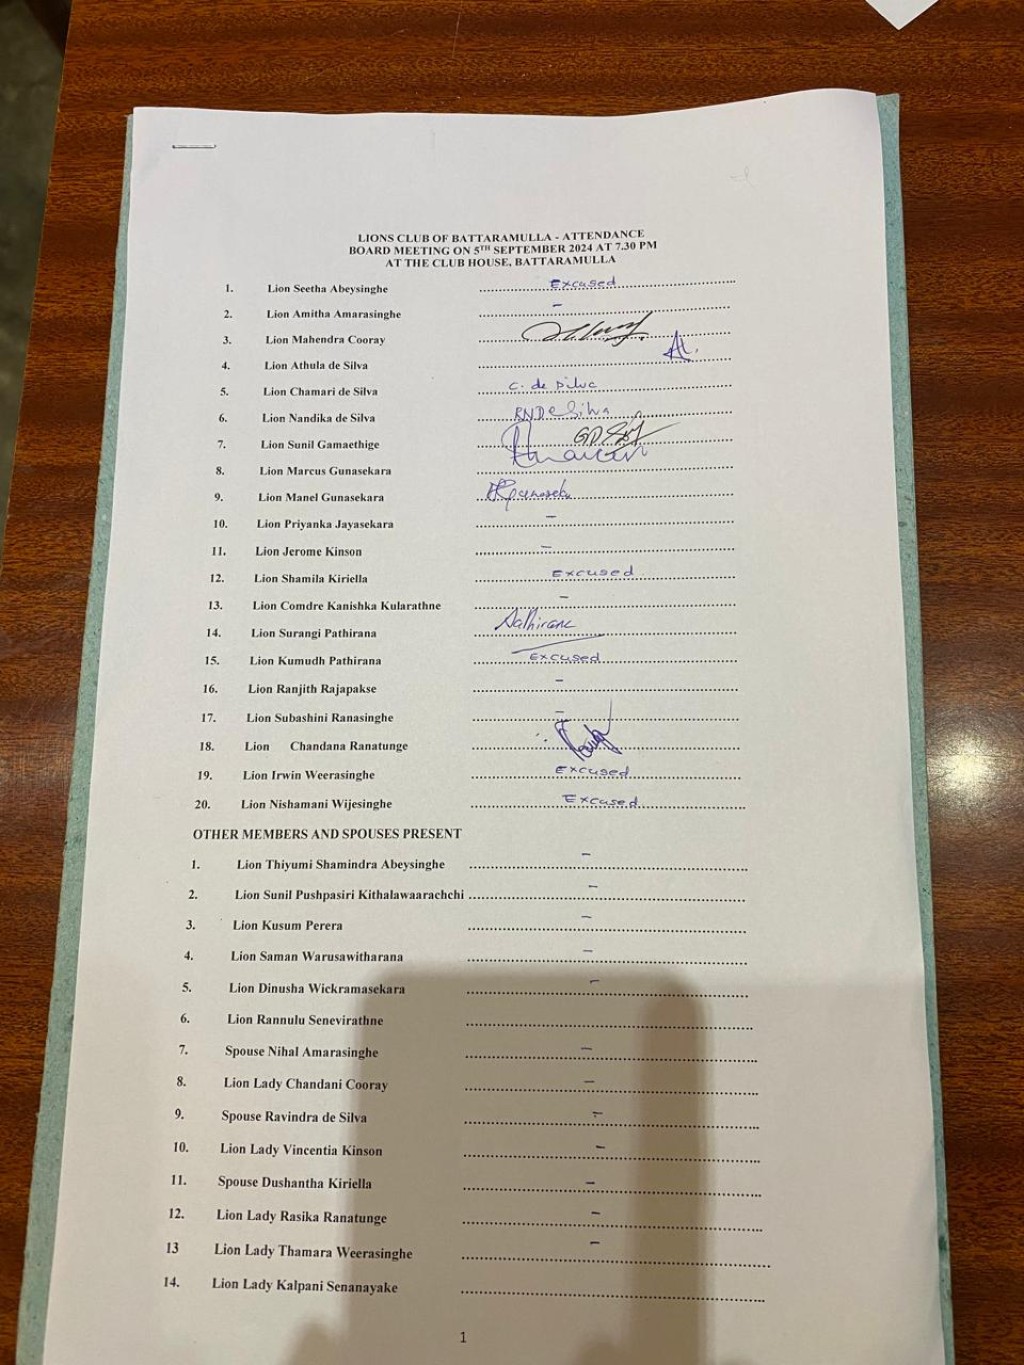 LIONS CLUB OF BATTARAMULLA - ATTENDANCE
BOARD MEETING ON 5TH SEPTEMBER 2024 AT 7.30 PM
AT THE CLUB HOUSE, BATTARAMULLA
1. Lion Seetha Abeysinghe Excused
2. Lion Amitha Amarasinghe -
3. Lion Mahendra Cooray
4. Lion Athula de Silva
5. Lion Chamari de Silva C. de Silva
6. Lion Nandika de Silva RNDeSilva
7. Lion Sunil Gamaethige
8. Lion Marcus Gunasekara
9. Lion Manel Gunasekara
10. Lion Priyanka Jayasekara -
11. Lion Jerome Kinson -
12. Lion Shamila Kiriella Excused
13. Lion Comdre Kanishka Kularathne -
14. Lion Surangi Pathirana
15. Lion Kumudh Pathirana Excused
16. Lion Ranjith Rajapakse -
17. Lion Subashini Ranasinghe -
18. Lion Chandana Ranatunge
19. Lion Irwin Weerasinghe Excused
20. Lion Nishamani Wijesinghe Excused
OTHER MEMBERS AND SPOUSES PRESENT
1. Lion Thiyumi Shamindra Abeysinghe -
2. Lion Sunil Pushpasiri Kithalawaarachchi -
3. Lion Kusum Perera -
4. Lion Saman Warusawitharana -
5. Lion Dinusha Wickramasekara -
6. Lion Rannulu Senevirathne
7. Spouse Nihal Amarasinghe -
8. Lion Lady Chandani Cooray -
9. Spouse Ravindra de Silva -
10. Lion Lady Vincentia Kinson -
11. Spouse Dushantha Kiriella -
12. Lion Lady Rasika Ranatunge -
13 Lion Lady Thamara Weerasinghe -
14. Lion Lady Kalpani Senanayake
1